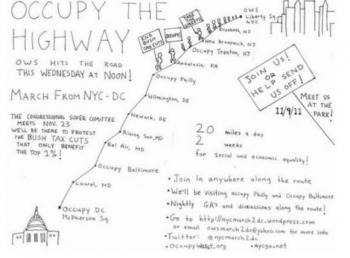 OCCUPY THE
HIGHWAY
OWS HITS THE ROAD
THIS WEDNESDAY AT NOON!
MARCH FROM NYC-DC
THE CONGRESSIONAL SUPER COMITTEE
MEETS NOV. 23
WE'LL BE THERE TO PROTEST
THE BUSH TAX CUTS
THAT ONLY BENEFIT
THE TOP 1%!
END
BUSH
TAX CUTS
OWS
Liberty Sq.
NYC
Elizabeth, NJ
New Brunswick, NJ
Occupy Trenton, NJ
Occupy Philly
Wilmington, DE
Newark, DE
Rising Sun, MD
Bel Air, MD
Occupy Baltimore
Laurel, MD
Occupy DC
McPherson Sq.
JOIN US!
OR
HELP SEND
US OFF!
MEET US
AT THE
PARK!
11/9/11
20 miles a day
2 weeks
for social and economic equality!
• Join in anywhere along the route
• We'll be visiting Occupy Philly and Occupy Baltimore
• Nightly GA's and discussions along the route!
• Go to http://nycmarch2dc.wordpress.com
or email owsmarch2dc@yahoo.com for more info
• Twitter: @nycmarch2dc
• nycga.net